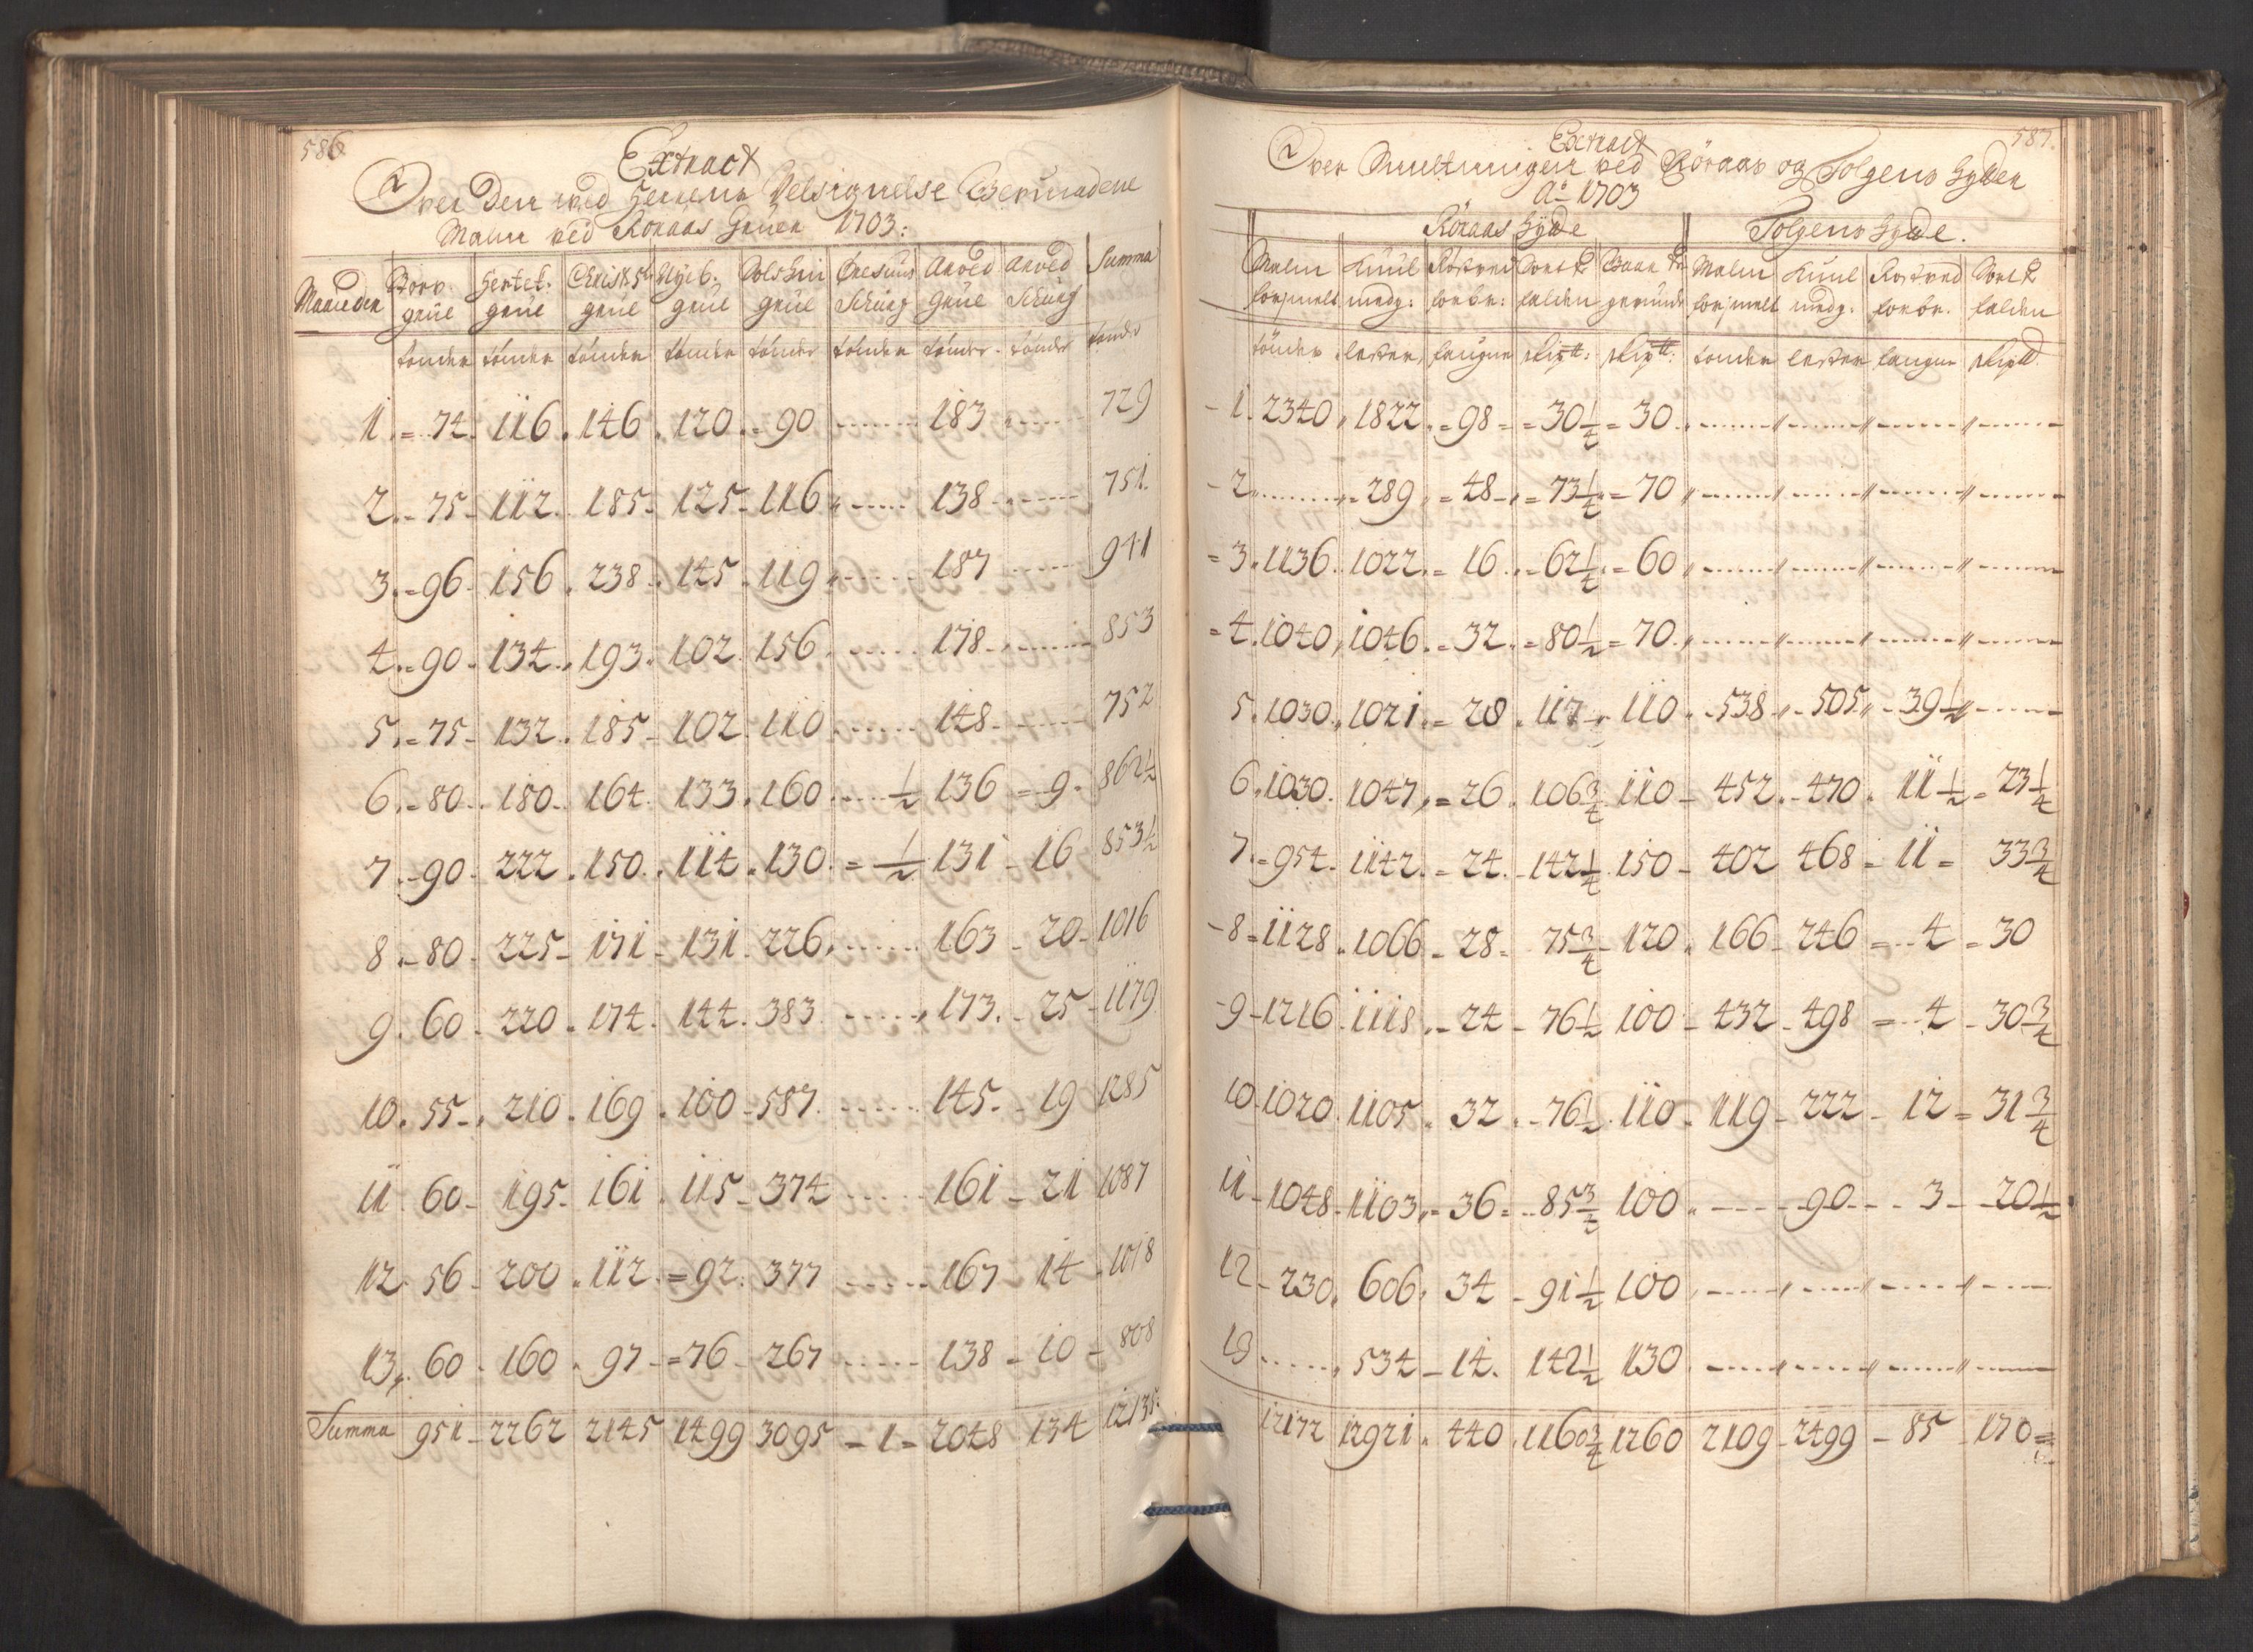 586.
Extract
Over Den ved Herrens Velsignelse
Malm ved Röraas Gruer 1703:
Maaneder Storv. grue Hertet. grue Christ: 5ti grue Nye b. grue Solskin grue Öresuns Skurf Arved Grue Arved Skurf Summa
tönder tönder tönder tönder tönder tönder tönder tönder tönder
1. = 74. 116. 146. 120. = 90 183 729
2. - 75 - 112. 185 - 125 - 116 138 751.
3. = 96 - 156. 238. 145 - 119 187 941
4. = 90 - 134. 193. 102. 156 178 853
5. = 75 - 132. 185 - 102. 110 148 752
6. = 80. 180. 164. 133. 160. 1/2 136 = 9. 862 1/2
7. - 90 - 222. 150. 114. 130. = 1/2 131 - 16 853 1/2
8. - 80. 225 - 171 - 131 - 226. 163 - 20 - 1016
9. 60 - 220. 174. 144. 383. 173. - 25 - 1179
10. 55 -. 210. 169. 100 - 587. 145. - 19 1285
11. 60 - 195 - 161. 115 - 374 161 - 21 1087
12. 56 - 200. 112. = 92. 377 167 14 - 1018
13. 60 - 160. 97 - = 76 - 267 138 - 10 - 808
Summa 951 - 2262 2145 1499 3095 - 1 = 2048 134 12135.
587.
Extract
Over Smeltningen ved Röraas og Tolgens Hytter
Ao 1703
Röraas Hytte Tolgens Hytte.
Malm forsmelt Kuul medg: Rostved forbr: Sort K falden Gaar K Malm forsmelt Kuul medg. Rostved forbr. Sort K falden
tönder lester faugne skip℔: skip℔: tönder lester faugne skip℔
- 1. 2340, 1822. = 98 = = 30 1/4 = 30.
- 2 289, = 48 -, = 73 1/4 = 70
= 3. 1136. 1022. = 16. = 62 1/4 = 60
= 4. 1040, 1046. = 32. = 80 1/2 = 70.
5. 1030. 1021. = 28. 117 -. 110. - 538. - 505. - 39 1/2
6. 1030. 1047. = 26. 106 3/4 110 - 452. - 470. 11 1/2 = 23 1/4
7. = 954. 1142. = 24. - 142 1/4 150 - 402 468 = 11 = 33 3/4
- 8 = 1128. 1066 - 28 = 75 3/4 - 120. 166 - 246 = 4 = 30
- 9 - 1216 - 1118. - 24 - 76 1/2 100 - 432 - 498 = 4 - 30 3/4
10 - 1020. 1105. 32. - 76 1/2. 110. 119 - 222 - 12 = 31 3/4
11 - 1048 - 1103, = 36 = 85 3/4 100. 90 3 - 20 1/2
12 - 230. 606. 34 - 91 1/2 100
13 534 - 14. 142 1/2 130
12172 12921. 440. 1160 3/4 1260 2109 - 2499 - 85 - 170